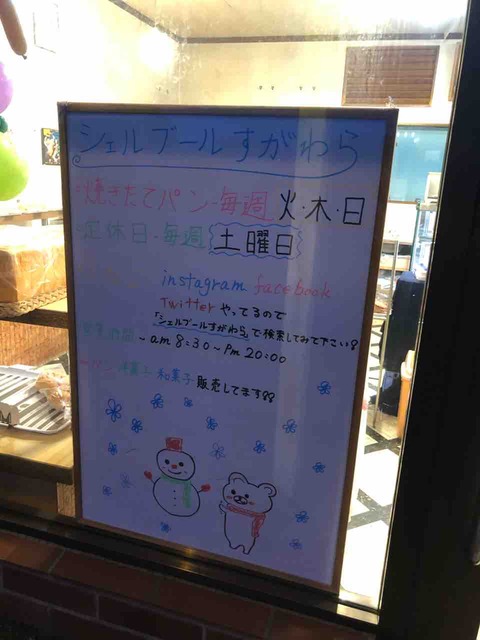 シェルブールすがわら
焼きたてパン・毎週 火・木・日
定休日・毎週 土曜日
instagram facebook
Twitter やってるので
「シェルブールすがわら」で検索してみて下さい!
~am 8:30~Pm 20:00
パン 洋菓子 和菓子 販売してます!!